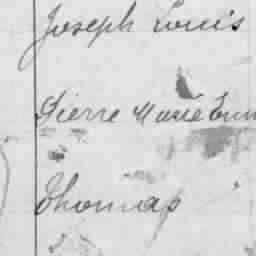 Joseph Louis
Pierre Marie Em
Thomas